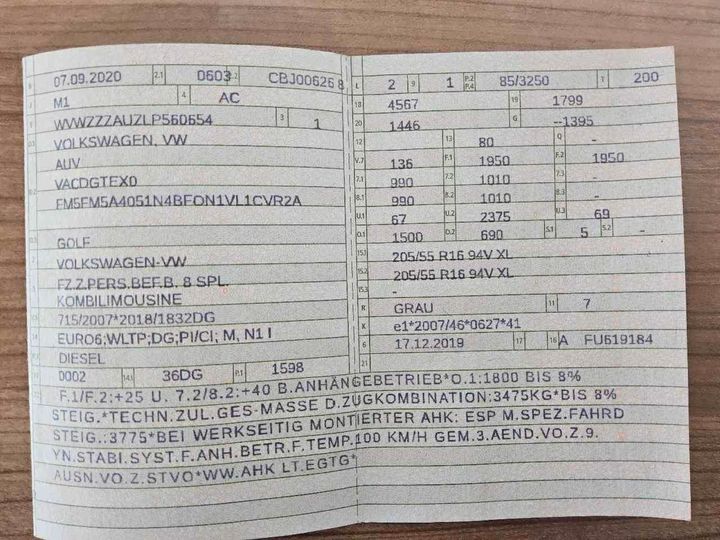 07.09.2020 2.1 0603 2.2 CBJ00626 8
J M1 4 AC
WVWZZZAUZLP560654 3 1
D.1 VOLKSWAGEN, VW
AUV
VACDGTEX0
D.2 FM5FM5A4051N4BFON1VL1CVR2A
D.3 GOLF
2 VOLKSWAGEN-VW
FZ.Z.PERS.BEF.B. 8 SPL.
KOMBILIMOUSINE
715/2007*2018/1832DG
EURO6;WLTP;DG;PI/CI; M, N1 I
DIESEL
0002 14.1 36DG P.1 1598
L 2 9 1 P.2 P.4 85/3250 T 200
18 4567 19 1799
20 1446 G --1395
12 13 80 Q -
V.7 136 F.1 1950 F.2 1950
7.1 990 7.2 1010 7.3 -
8.1 990 8.2 1010 8.3 -
U.1 67 U.2 2375 U.3 69
O.1 1500 O.2 690 S.1 5 S.2 -
15.1 205/55 R16 94V XL
15.2 205/55 R16 94V XL
15.3 -
R GRAU 11 7
K e1*2007/46*0627*41
6 17.12.2019 17 16 A FU619184
21
F.1/F.2:+25 U. 7.2/8.2:+40 B.ANHÄNGEBETRIEB*O.1:1800 BIS 8%
STEIG.*TECHN.ZUL.GES-MASSE D.ZUGKOMBINATION:3475KG*BIS 8%
STEIG.:3775*BEI WERKSEITIG MONTIERTER AHK: ESP M.SPEZ.FAHRD
YN.STABI.SYST.F.ANH.BETR.F.TEMP.100 KM/H GEM.3.AEND.VO.Z.9.
AUSN.VO.Z.STVO*WW.AHK LT.EGTG*